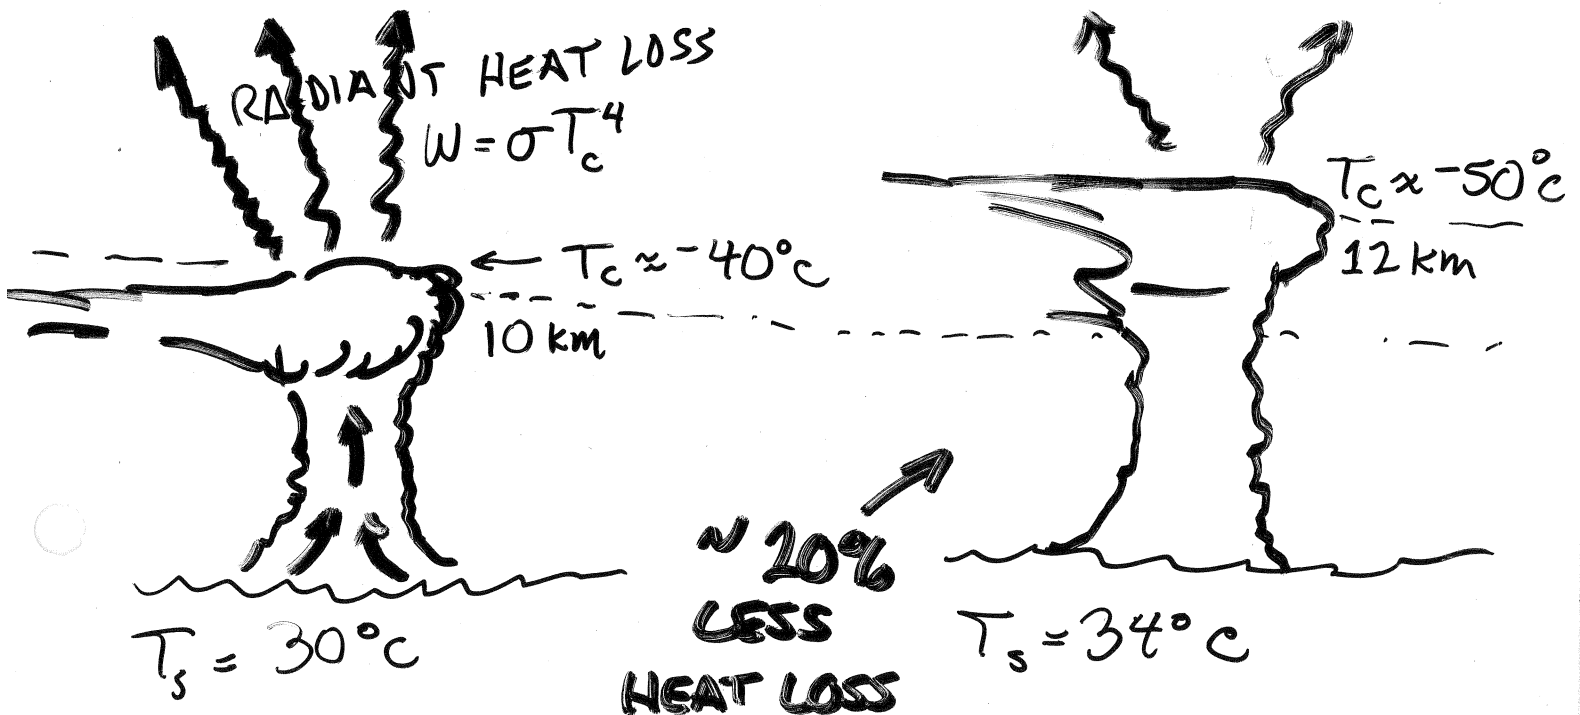 RADIANT HEAT LOSS
W = σT_c⁴
T_c ≈ -40°C
10 km
T_s = 30°C
~ 20%
LESS
HEAT LOSS
T_c ≈ -50°C
12 km
T_s = 34°C